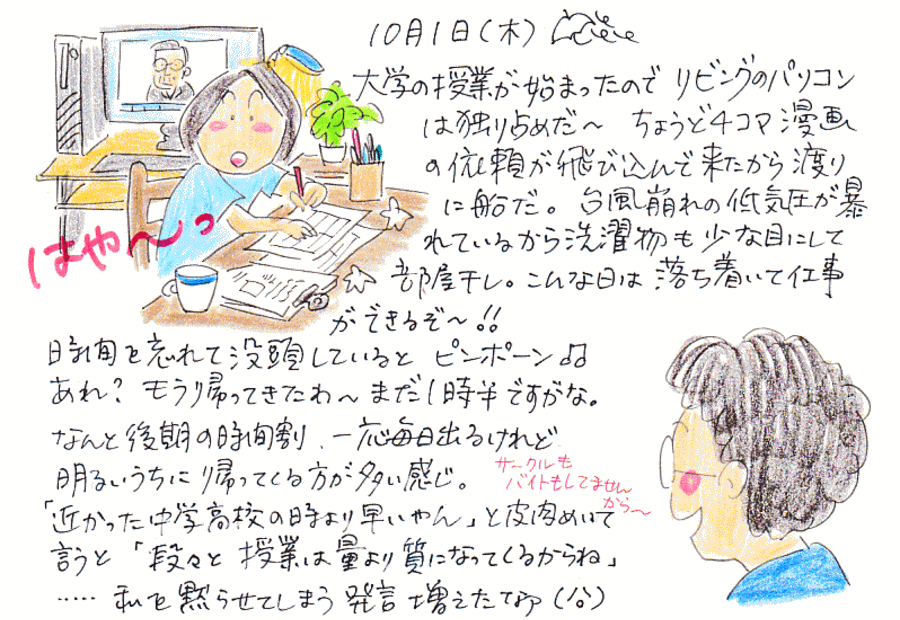 10月1日(木)
大学の授業が始まったので リビングのパソコン
は独り占めだ〜 ちょうど4コマ漫画
の依頼が飛び込んで来たから渡り
に船だ。台風崩れの低気圧が暴
れているから洗濯物も少な目にして
部屋干し。こんな日は 落ち着いて仕事
ができるぞ〜!!
はや〜っ
時間を忘れて没頭していると ピンポーン♫
あれ? もう帰ってきたわ〜まだ1時半ですがな。
なんと後期の時間割、一応毎日出るけれど
明るいうちに帰ってくる方が多い感じ。
サークルも
バイトもしてません
から〜
「近かった中学高校の時より早いやん」と皮肉めいて
言うと「段々と 授業は量より質になってくるからね」
‥‥‥ 私を黙らせてしまう発言増えたなァ(公)